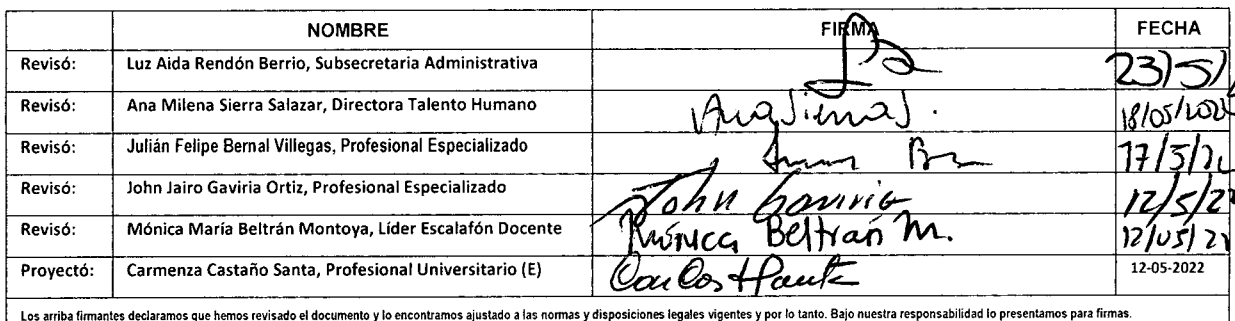 NOMBRE FIRMA FECHA
Revisó: Luz Aida Rendón Berrio, Subsecretaria Administrativa 23/5/
Revisó: Ana Milena Sierra Salazar, Directora Talento Humano Ana Sierra S. 18/05/2022
Revisó: Julián Felipe Bernal Villegas, Profesional Especializado 17/5/
Revisó: John Jairo Gaviria Ortiz, Profesional Especializado John Gaviria 12/5/22
Revisó: Mónica María Beltrán Montoya, Líder Escalafón Docente Mónica Beltrán M. 12/05/22
Proyectó: Carmenza Castaño Santa, Profesional Universitario (E) 12-05-2022
Los arriba firmantes declaramos que hemos revisado el documento y lo encontramos ajustado a las normas y disposiciones legales vigentes y por lo tanto. Bajo nuestra responsabilidad lo presentamos para firmas.